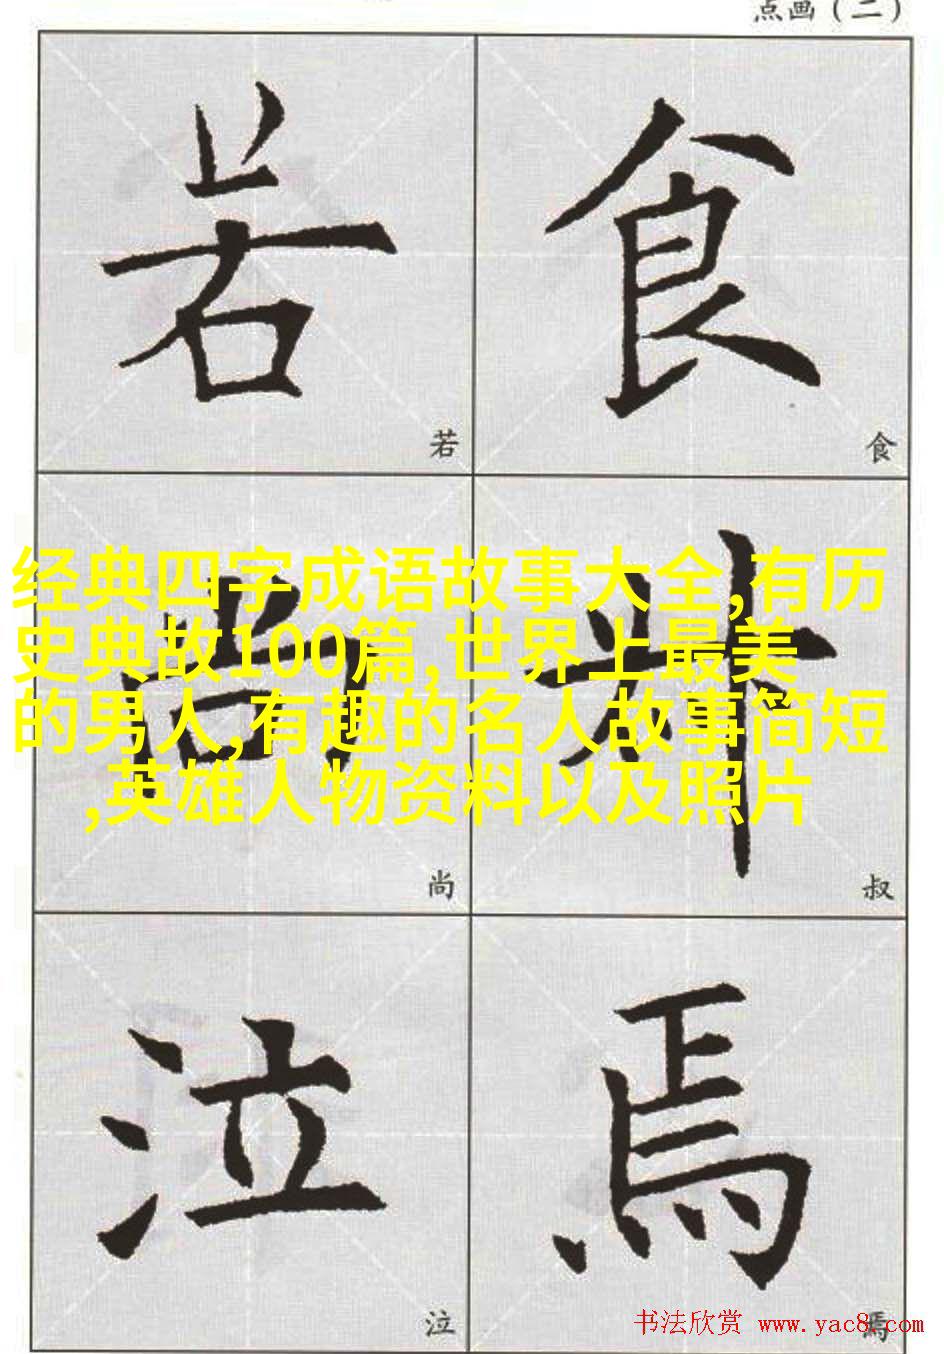 点画（二）
若 食
若 食
经典四字成语故事大全,有历
史典故100篇,世界上最美
的男人,有趣的名人故事简短
,英雄人物资料以及照片
尚 叔
尚 叔
泣 焉
泣 焉
书法欣赏 www.yac8.com